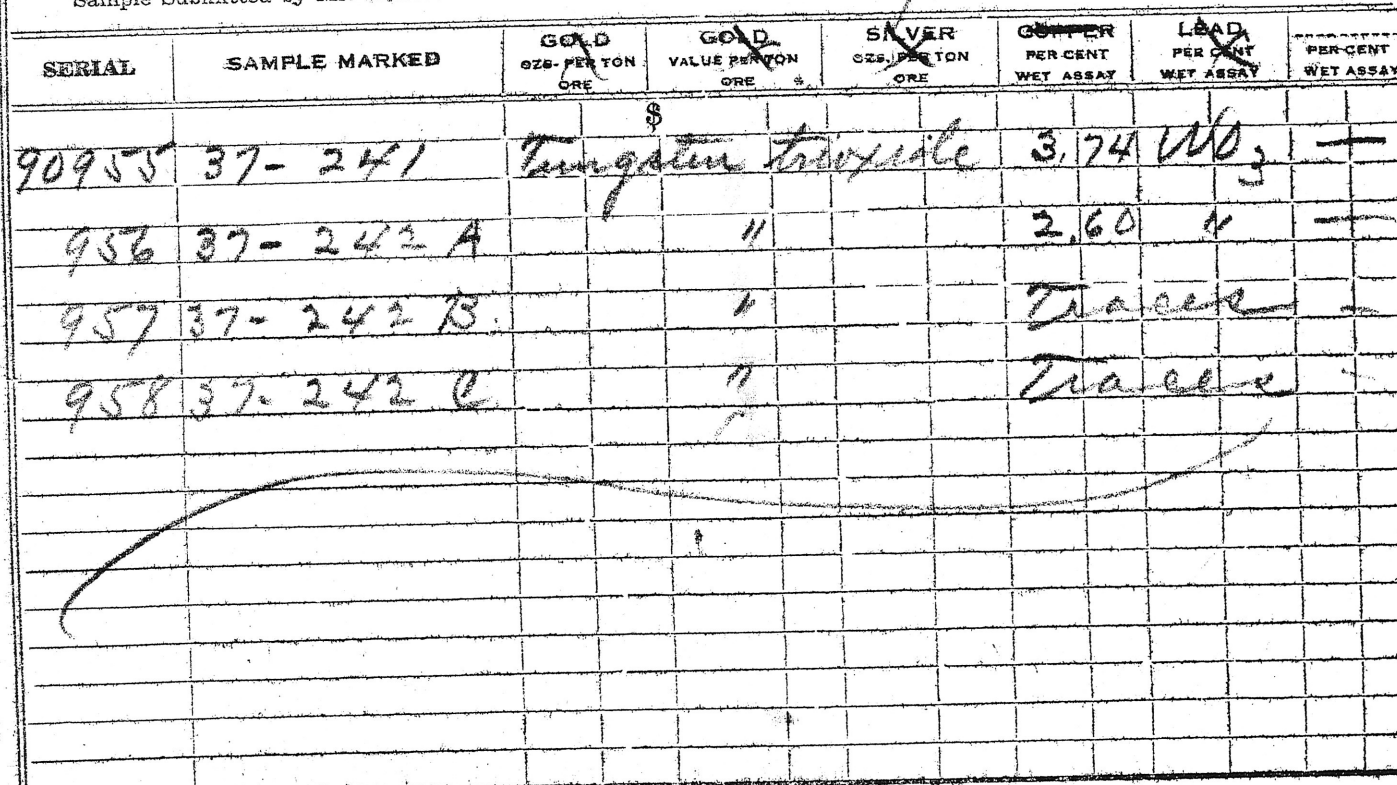 Sample Submitted by
SERIAL SAMPLE MARKED GOLD OZS. PER TON ORE GOLD VALUE PER TON ORE SILVER OZS. PER TON ORE COPPER PER CENT WET ASSAY LEAD PER CENT WET ASSAY PER CENT WET ASSAY
$
90955 37- 241 Tungsten trioxide 3.74 WO3 —
956 37- 242 A " 2.60 " —
957 37- 242 B. " Traces –
958 37- 242 C " Traces -